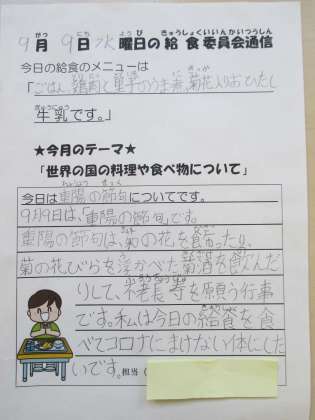 9月 9日 水曜日の給食委員会通信
今日の給食のメニューは
「ごはん、鶏肉と里芋のうま煮、菊花入りおひたし
牛乳です。」
★今月のテーマ★
「世界の国の料理や食べ物について」
今日は重陽の節句についてです。
9月9日は、「重陽の節句」です。
重陽の節句は、菊の花を食べたり、
菊の花びらを浮かべた菊酒を飲んだ
りして、不老長寿を願う行事
です。私は今日の給食を食
べてコロナにまけない体にした
いです。担当（